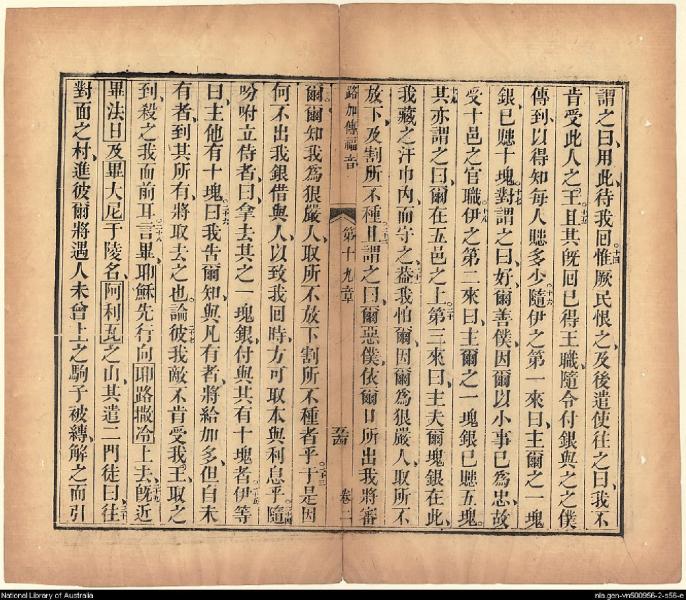 謂之曰用此待我囘十四惟厥民恨之及後遣使往之曰我不
肯受此人之王十五且其旣囘已得王職隨令付銀與之之僕
傳到以得知每人賺多少十六隨伊之第一來曰主爾之一塊
銀已賺十塊十七對謂之曰好爾善僕因爾以小事已為忠故
受十邑之官職十八伊之第二來曰主爾之一塊銀已賺五塊
十九其亦謂之曰爾在五邑之上二十第三來曰主夫爾塊銀在此
我藏之汗巾內而守之二一葢我怕爾因爾為狠嚴人取所不
放下及割所不種二二且謂之曰爾惡僕依爾口所出我將審
路加傳福音 第十九章 五四 卷二
爾爾知我為狠嚴人取所不放下割所不種者乎二三于是因
何不出我銀借與人以致我囘時方可取本與利息乎二四隨
吩咐立侍者曰拿去其之一塊銀付與其有十塊者二五伊等
曰主他有十塊二六曰我吿爾知與凡有者將給加多但自未
有者到其所有將取去之也二七論彼我敵不肯受我王取之
到殺之我面前二八耳言畢耶穌先行向耶路撒冷上去二九旣近
畢法日及畢大尼于陵名阿利瓦之山其遣二門徒三十曰往
對面之村進彼爾將遇人未曾上之駒子被縛解之而引
National Library of Australia
nla.gen-vn500956-2-s56-e